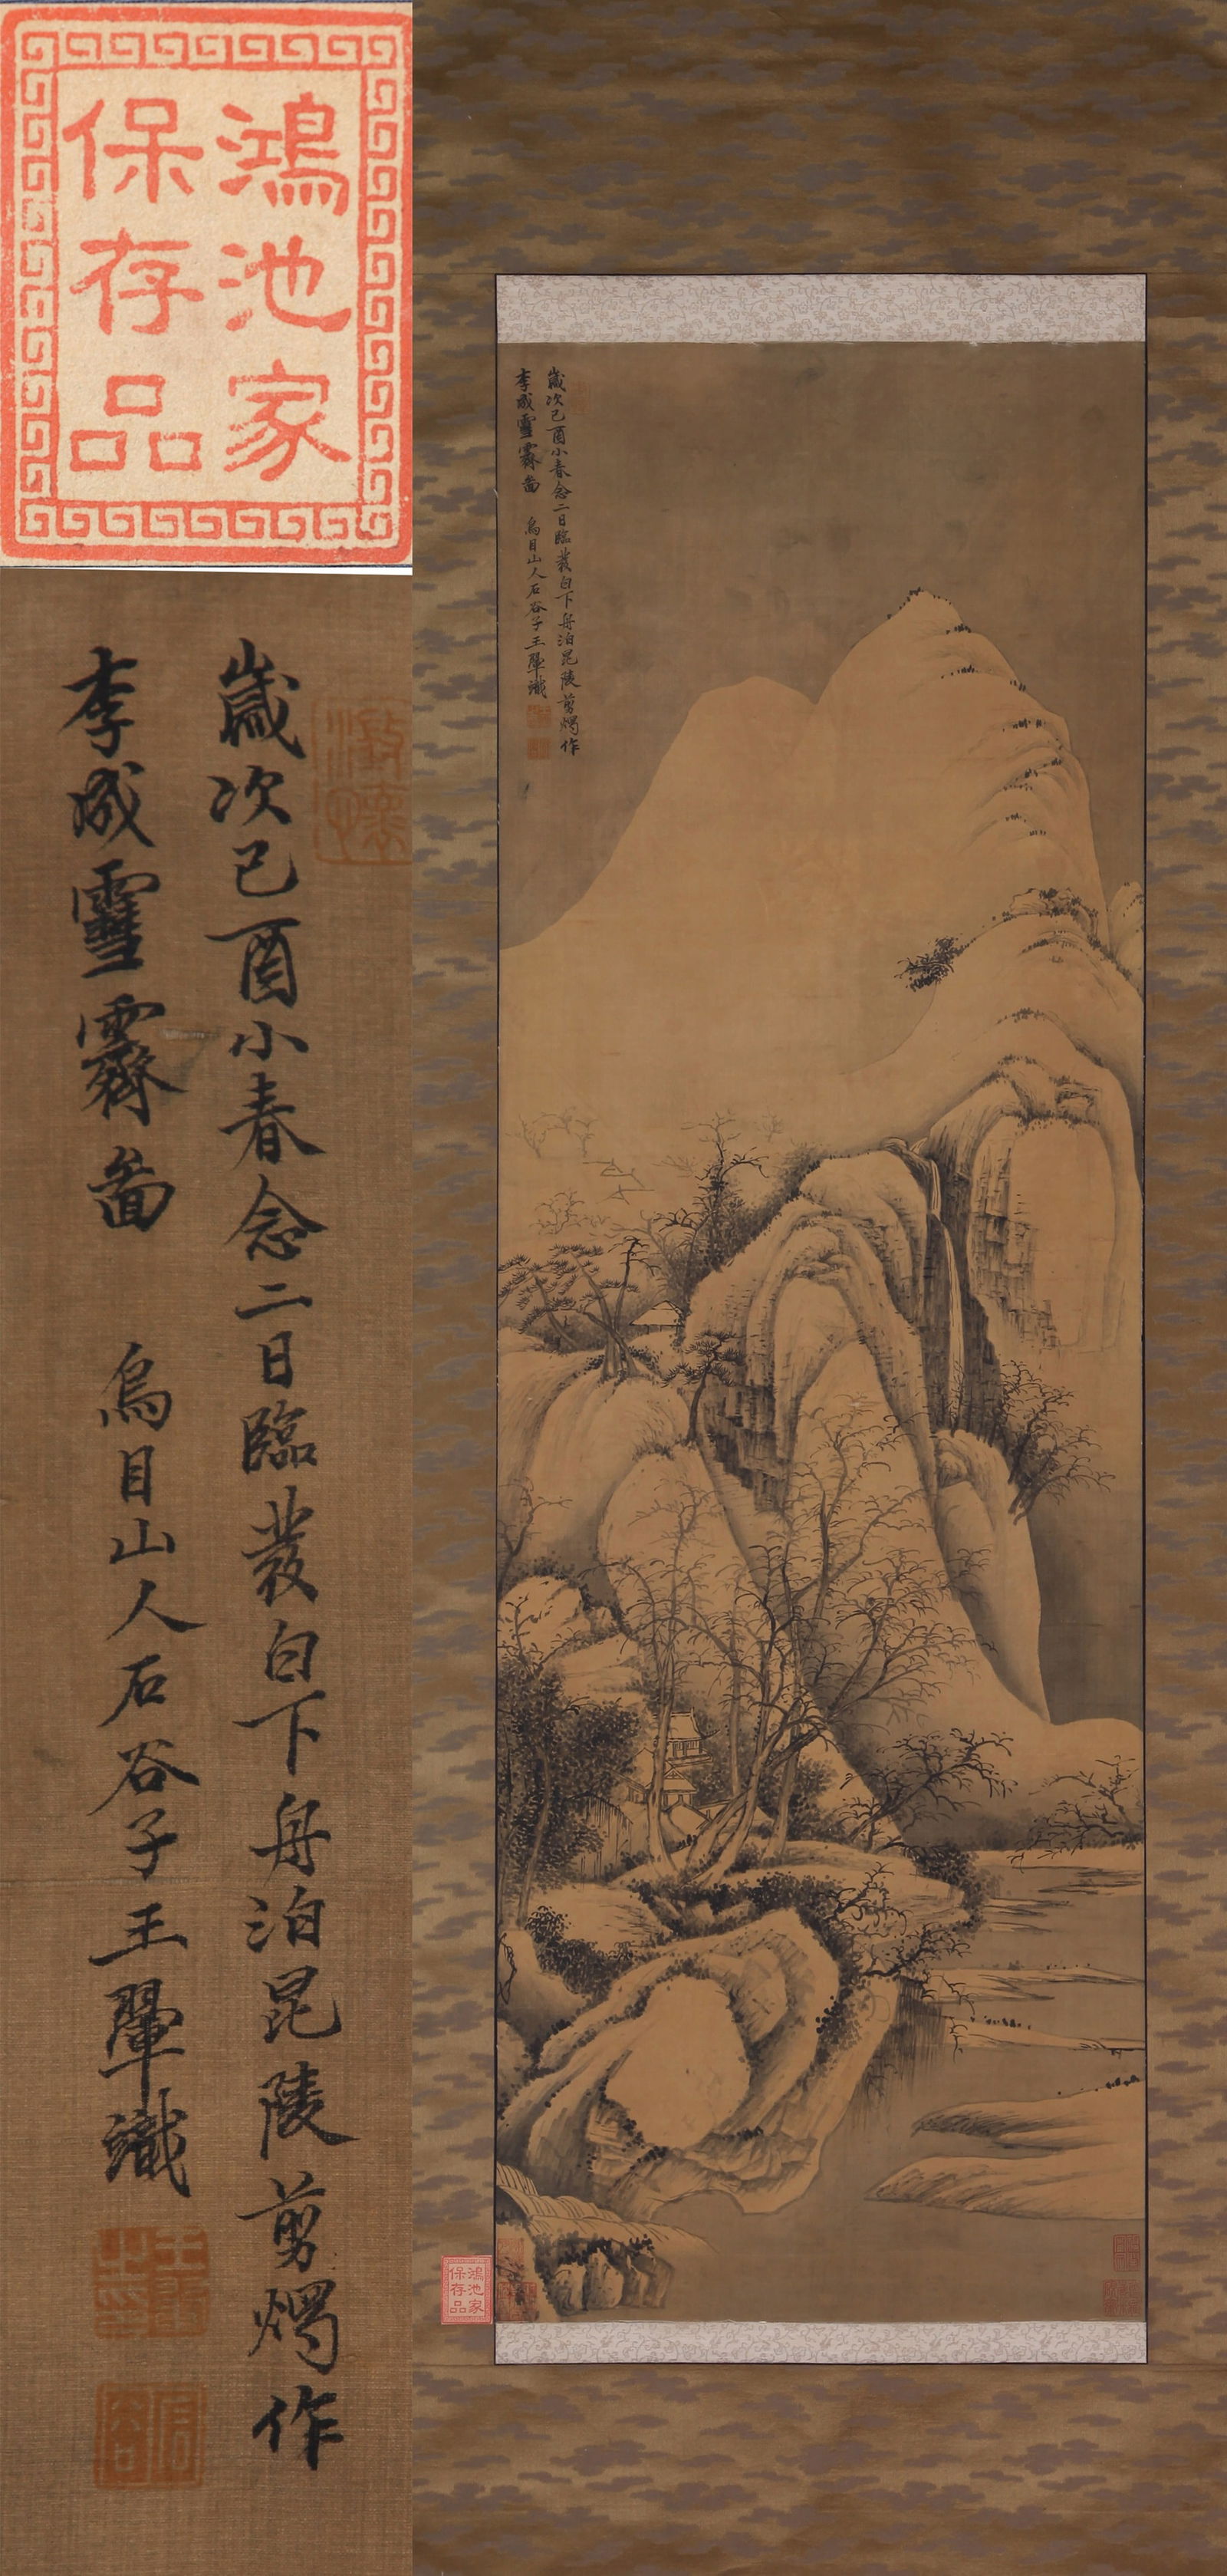 鴻池家
保存品
歲次己酉小春念二日臨發白下舟泊昆陵剪燭作
李成雪霽啚　烏目山人石谷子王翬識
歲次己酉小春念二日臨發白下舟泊昆陵剪燭作
李成雪霽啚　烏目山人石谷子王翬識
鴻池家
保存品